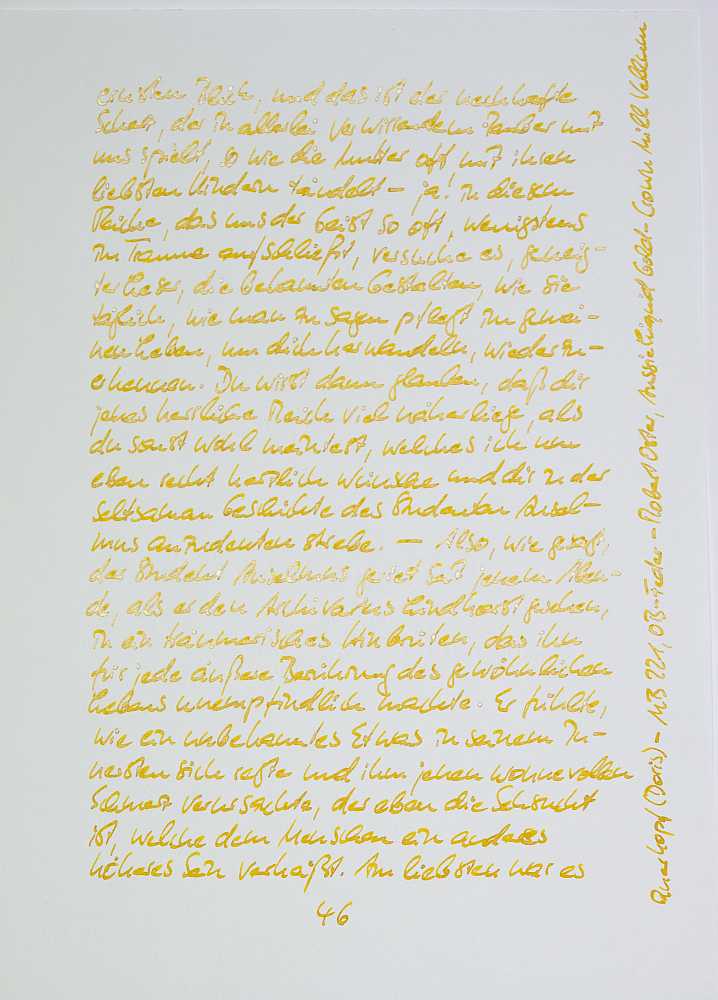 ernsten Reich, und das ist der nachhafte
Scherz, der in allerlei verwirrendem Zauber mit
uns spielt, so wie die Mutter oft mit ihren
liebsten Kindern tändelt – ja! in diesem
Reiche, das uns der Geist so oft, wenigstens
im Traume aufschließt, versuche es, geneig-
ter Leser, die bekannten Gestalten, wie sie
täglich, wie man zu sagen pflegt im gemei-
nen Leben, um dich herwandeln, wiederzu-
erkennen. Du wirst dann glauben, daß dir
jenes herrliche Reich viel näher liege, als
du sonst wohl meintest, welches ich nun
eben recht herzlich wünsche und dir in der
seltsamen Geschichte des Studenten Ansel-
mus anzudeuten strebe. – Also, wie gesagt,
der Student Anselmus geriet seit jenem Aben-
de, als er den Archivarius Lindhorst gesehen,
in ein träumerisches Hinbrüten, das ihn
für jede äußere Berührung des gewöhnlichen
Lebens unempfindlich machte. Er fühlte,
wie ein unbekanntes Etwas in seinem In-
nersten sich regte und ihm jenen wonnevollen
Schmerz verursachte, der eben die Sehnsucht
ist, welche dem Menschen ein anderes
höheres Sein verheißt. Am liebsten war es
46
Querkopf (Doris) – MB 221, OB-Feder – Robert Oster, Aussie Liquid Gold – Crown Mill Vellum